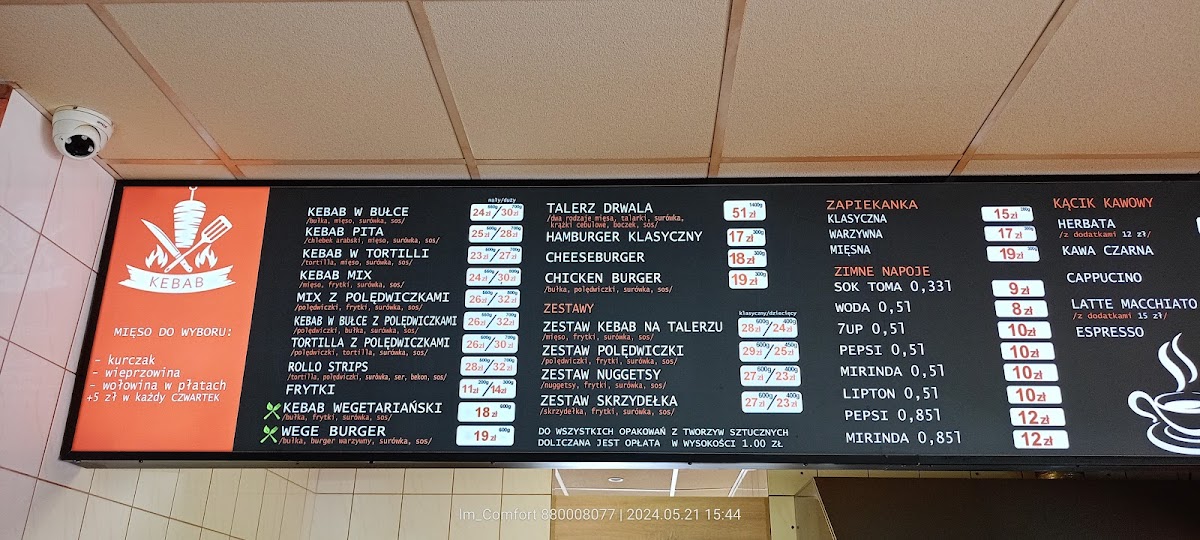 KEBAB
MIĘSO DO WYBORU:
- kurczak
- wieprzowina
- wołowina w płatach
+5 zł w każdy CZWARTEK
mały/duży
KEBAB W BUŁCE 24zł/30zł
/bułka, mięso, surówka, sos/
KEBAB PITA 25zł/28zł
/chlebek arabski, mięso, surówka, sos/
KEBAB W TORTILLI 23zł/27zł
/tortilla, mięso, surówka, sos/
KEBAB MIX 24zł/30zł
/mięso, frytki, surówka, sos/
MIX Z POLĘDWICZKAMI 26zł/32zł
/polędwiczki, frytki, surówka, sos/
KEBAB W BUŁCE Z POLĘDWICZKAMI 26zł/32zł
/polędwiczki, bułka, surówka, sos/
TORTILLA Z POLĘDWICZKAMI 26zł/30zł
/polędwiczki, tortilla, surówka, sos/
ROLLO STRIPS 28zł/32zł
/tortilla, polędwiczki, surówka, ser, bekon, sos/
FRYTKI 11zł 200g/14zł 300g
KEBAB WEGETARIAŃSKI 18 zł 600g
/bułka, frytki, surówka, sos/
WEGE BURGER 19 zł 600g
/bułka, burger warzywny, surówka, sos/
TALERZ DRWALA 51zł 1400g
/dwa rodzaje mięsa, talarki, surówka,
krążki cebulowe, boczek, sos/
HAMBURGER KLASYCZNY 17zł 300g
CHEESEBURGER 18zł 300g
CHICKEN BURGER 19zł 300g
/bułka, polędwiczki, surówka, sos/
ZESTAWY
klasyczny/dziecięcy
ZESTAW KEBAB NA TALERZU 28zł 600g/24zł 400g
/mięso, frytki, surówka, sos/
ZESTAW POLĘDWICZKI 29zł 600g/25zł 450g
/polędwiczki, frytki, surówka, sos/
ZESTAW NUGGETSY 27zł 600g/23zł 400g
/nuggetsy, frytki, surówka, sos/
ZESTAW SKRZYDEŁKA 27zł 600g/23zł 400g
/skrzydełka, frytki, surówka, sos/
DO WSZYSTKICH OPAKOWAŃ Z TWORZYW SZTUCZNYCH
DOLICZANA JEST OPŁATA W WYSOKOŚCI 1.00 ZŁ
ZAPIEKANKA
KLASYCZNA 15zł
WARZYWNA 17zł
MIĘSNA 19zł
ZIMNE NAPOJE
SOK TOMA 0,33l 9 zł
WODA 0,5l 8 zł
7UP 0,5l 10zł
PEPSI 0,5l 10zł
MIRINDA 0,5l 10zł
LIPTON 0,5l 10zł
PEPSI 0,85l 12 zł
MIRINDA 0,85l 12 zł
KĄCIK KAWOWY
HERBATA
/z dodatkami 12 zł/
KAWA CZARNA
CAPPUCINO
LATTE MACCHIATO
/z dodatkami 15 zł/
ESPRESSO
Im_Comfort 880008077 | 2024.05.21 15:44